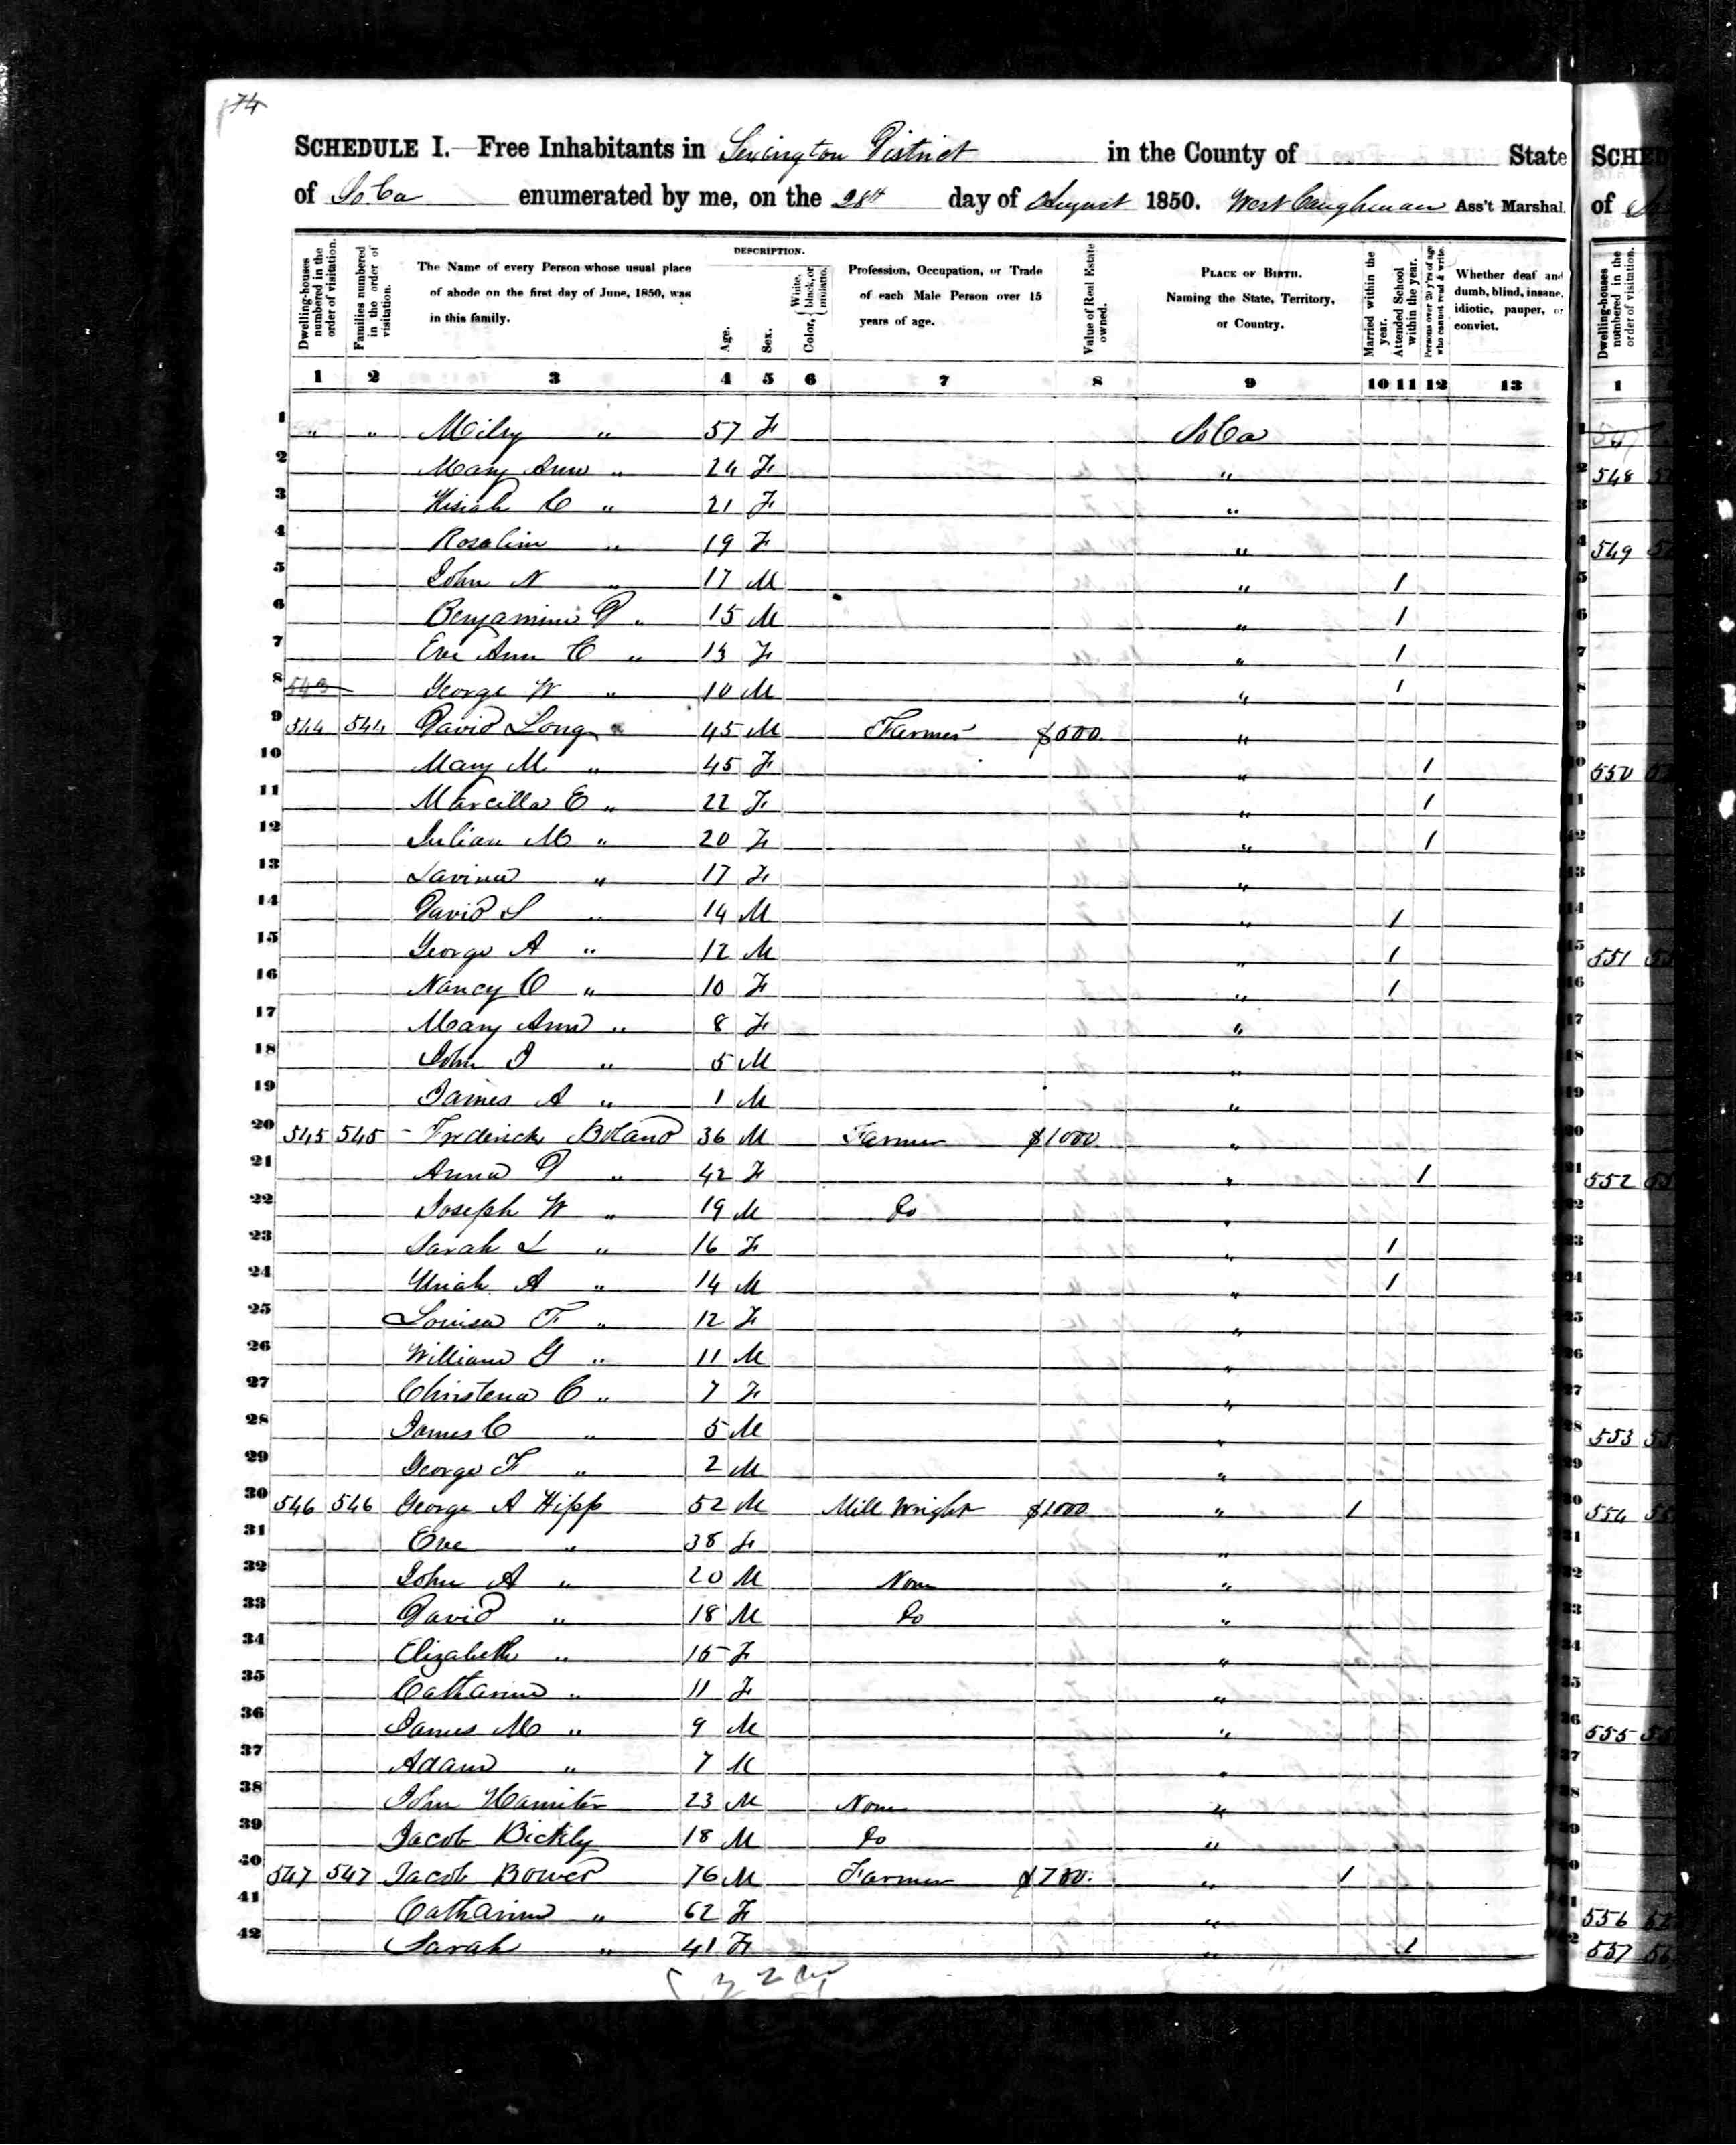 74
SCHEDULE I.—Free Inhabitants in Lexington District in the County of State
of So Ca enumerated by me, on the 28th day of August 1850. West Caughman Ass't Marshal.
Dwelling-houses numbered in the order of visitation.
Families numbered in the order of visitation.
The Name of every Person whose usual place of abode on the first day of June, 1850, was in this family.
DESCRIPTION.
Age.
Sex.
Color, { White, black, or mulatto.
Profession, Occupation, or Trade of each Male Person over 15 years of age.
Value of Real Estate owned.
PLACE OF BIRTH. Naming the State, Territory, or Country.
Married within the year.
Attended School within the year.
Persons over 20 y'rs of age who cannot read & write.
Whether deaf and dumb, blind, insane, idiotic, pauper, or convict.
1 2 3 4 5 6 7 8 9 10 11 12 13
1 " " Milly " 57 F So Ca
2 Mary Ann " 24 F "
3 Kisiah C " 21 F "
4 Rosaline " 19 F "
5 John N " 17 M " 1
6 Benjamin D " 15 M " 1
7 Eve Ann C " 13 F " 1
8 543 George W " 10 M " 1
9 544 544 David Long 45 M Farmer $500. "
10 Mary M " 45 F " 1
11 Marcilla E " 22 F " 1
12 Julian M " 20 F " 1
13 Lavina " 17 F "
14 David S " 14 M " 1
15 George A " 12 M " 1
16 Nancy C " 10 F " 1
17 Mary Ann " 8 F "
18 John J " 5 M "
19 James A " 1 M "
20 545 545 Frederick Boland 36 M Farmer $1000 "
21 Anna D " 42 F " 1
22 Joseph W " 19 M Do "
23 Sarah L " 16 F " 1
24 Uriah A " 14 M " 1
25 Louisa F " 12 F "
26 William G " 11 M "
27 Christena C " 7 F "
28 James C " 5 M "
29 George F " 2 M "
30 546 546 George A Hipp 52 M Mill Wright $1000 " 1
31 Eve " 38 F "
32 John A " 20 M None "
33 David " 18 M Do "
34 Elizabeth " 15 F "
35 Catharine " 11 F "
36 James M " 9 M "
37 Adam " 7 M "
38 John Hamiter 23 M None "
39 Jacob Bickly 18 M Do "
40 547 547 Jacob Bower 76 M Farmer $700. " 1
41 Catharine " 62 F "
42 Sarah " 41 F " 1
SCHED
of
Dwelling-houses numbered in the order of visitation.
1
548
549
550
551
552
553
554
555
556
557